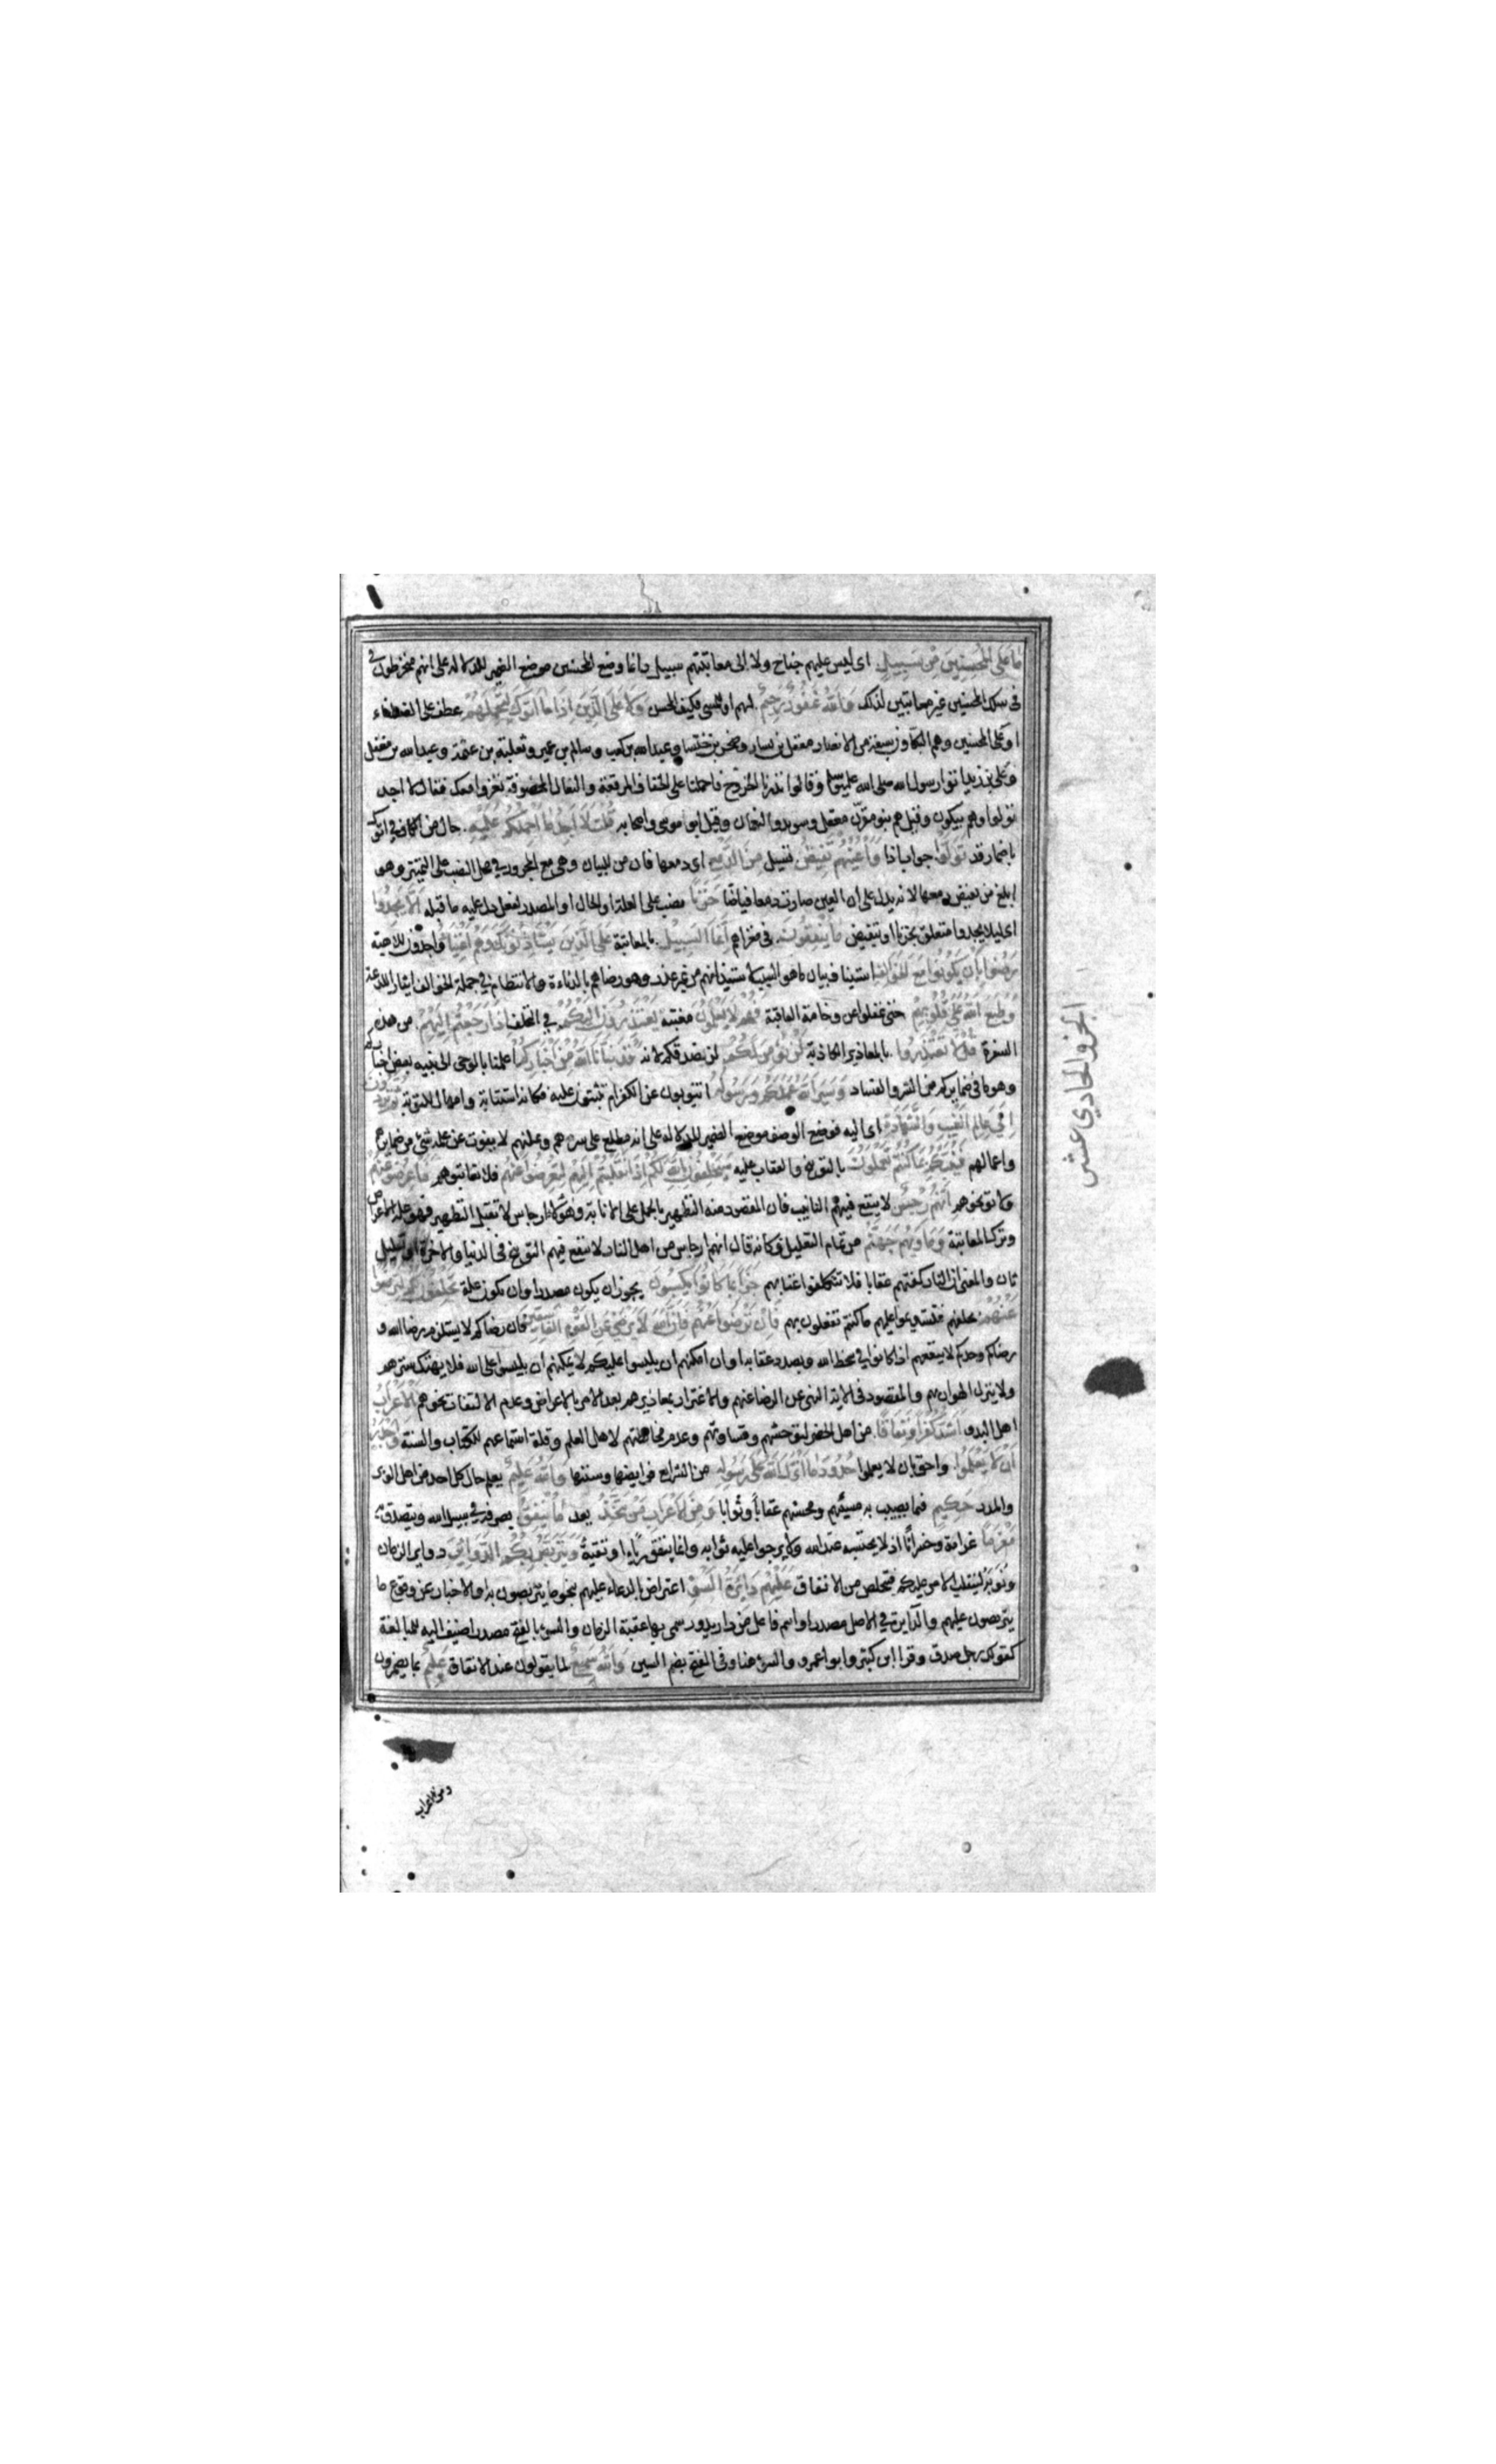 ما على المحسنين من سبيل اى ليس عليهم جناح ولا الى معاتبتهم سبيل وانما وضع المحسنين موضع الضمير للدلالة على انهم منخرطون
فى سلك المحسنين غير معاتبين لذلك والله غفور رحيم لهم او للمسى فكيف المحسن ولا على الذين اذا ما اتوك لتحملهم عطف على الضعفاء
او على المحسنين وهم البكاؤن سبعة من الانصار معقل بن يسار وصخر بن خنسا وعبدالله بن كعب وسالم بن عمير وثعلبة بن عنمة وعبدالله بن مغفل
وعلى بن زيد اتوا رسول الله صلى الله عليه وسلم وقالوا نذرنا الخروج فاحملنا على الخفاف المرقعة والنعال المخصوفة نغزوا معك فقال لا اجد
تولوا وهم يبكون وقيل هم بنو مقرن معقل وسويد والنعمان وقيل ابو موسى واصحابه قلت لا اجد ما احملكم عليه حال من الكاف فى اتوك
باضمار قد تولوا جواب اذا واعينهم تفيض تسيل من الدمع اى دمعها فان من للبيان وهى مع المجرور فى محل النصب على التمييز وهو
ابلغ من يفيض دمعها لانه يدل على ان العين صارت دمعا فياضا حزنا نصب على العلة او الحال او المصدر لفعل دل عليه ما قبله الا يجدوا
اى ليلا يجدوا متعلق بحزنا او بتفيض ما ينفقون فى مغزاهم انما السبيل بالمعاتبة على الذين يستاذنونك وهم اغنياء واجدون للاهبة
رضوا بان يكونوا مع الخوالف استيناف بيان ما هو السبب لاستيذانهم من غير عذر وهو رضاهم بالدناءة والانتظام فى جملة الخوالف ايثارا للدعة
وطبع الله على قلوبهم حتى غفلوا عن وخامة العاقبة فهم لا يعلمون مغبته يعتذرون اليكم فى التخلف اذا رجعتم اليهم من هذه
السفرة قل لا تعتذروا بالمعاذير الكاذبة لن نؤمن لكم لن نصدقكم لانه قد نبأنا الله من اخباركم اعلمنا بالوحى الى نبيه بعض اخباركم
وهو ما فى ضمايركم من الشر والفساد وسيرى الله عملكم ورسوله اتتوبون عن الكفر ام تثبتون عليه فكانه استتابة وامهال للتوبة ثم تردون
الى عالم الغيب والشهادة اى اليه فوضع الوصف موضع الضمير للدلالة على انه مطلع على سرهم وعلنهم لا يفوت عن علمه شئ من ضمايرهم
واعمالهم فينبئكم بما كنتم تعملون بالتوبيخ والعقاب عليه سيحلفون بالله لكم اذا انقلبتم اليهم لتعرضوا عنهم فلا تعاتبوهم فاعرضوا عنهم
ولا توبخوهم انهم رجس لا ينفع فيهم التانيب فان المقصود منه التطهير بالحمل على الانابة وهؤلاء ارجاس لا تقبل التطهير فهو علة الاعراض
وترك المعاتبة وماويهم جهنم من تمام التعليل وكانه قال انهم ارجاس من اهل النار لا ينفع فيهم التوبيخ فى الدنيا والاخرة او تعليل
ثان والمعنى ان النار كفتهم عقابا فلا تتكلفوا عتابهم جزاء بما كانوا يكسبون يجوز ان يكون مصدرا وان يكون علة يحلفون لكم لترضوا
عنهم بحلفهم فتستديموا عليهم ما كنتم تفعلون بهم فان ترضوا عنهم فان الله لا يرضى عن القوم الفاسقين فان رضاكم لا يستلزم رضا الله و
رضاكم وحدكم لا ينفعهم اذا كانوا فى سخط الله وبصدد عقابه او ان امكنهم ان يلبسوا عليكم لا يمكنهم ان يلبسوا على الله فلا يهتك سترهم
ولا ينزل الهوان بهم والمقصود فى الاية النهى عن الرضا عنهم والاغترار بمعاذيرهم بعد الامر بالاعراض وعدم الالتفات نحوهم الاعراب
اهل البدو اشد كفرا ونفاقا من اهل الحضر لتوحشهم وقساوتهم وعدم مخالطتهم لاهل العلم وقلة استماعهم للكتاب والسنة واجدر
ان لا يعلموا واحق بان لا يعلموا حدود ما انزل الله على رسوله من الشرايع فرايضها وسننها والله عليم يعلم حال كل احد من اهل الوبر
والمدر حكيم فيما يصيب به مسيئهم ومحسنهم عقابا وثوابا ومن الاعراب من يتخذ يعد ما ينفق يصرفه فى سبيل الله ويتصدق به
مغرما غرامة وخسرانا اذ لا يحتسبه عند الله ولا يرجوا عليه ثوابه وانما ينفق رياءا وتقية ويتربص بكم الدوائر دواير الزمان
ونوبه لينقلب الامر عليكم فيتخلص من الانفاق عليهم دايرة السوء اعتراض بالدعاء عليهم بنحو ما يتربصون به او الاخبار عن وقوع ما
يتربصون عليهم والدايرة فى الاصل مصدر او اسم فاعل من دار يدور سمى بها عقبة الزمان والسوء بالفتح مصدر اضيف اليه للمبالغة
كقولك رجل صدق وقرا ابن كثير وابو عمرو السوء هنا وفى الفتح بضم السين والله سميع لما يقولون عند الانفاق عليم بما يضمرون
ومن الاعراب
الجزو الحادي عشر